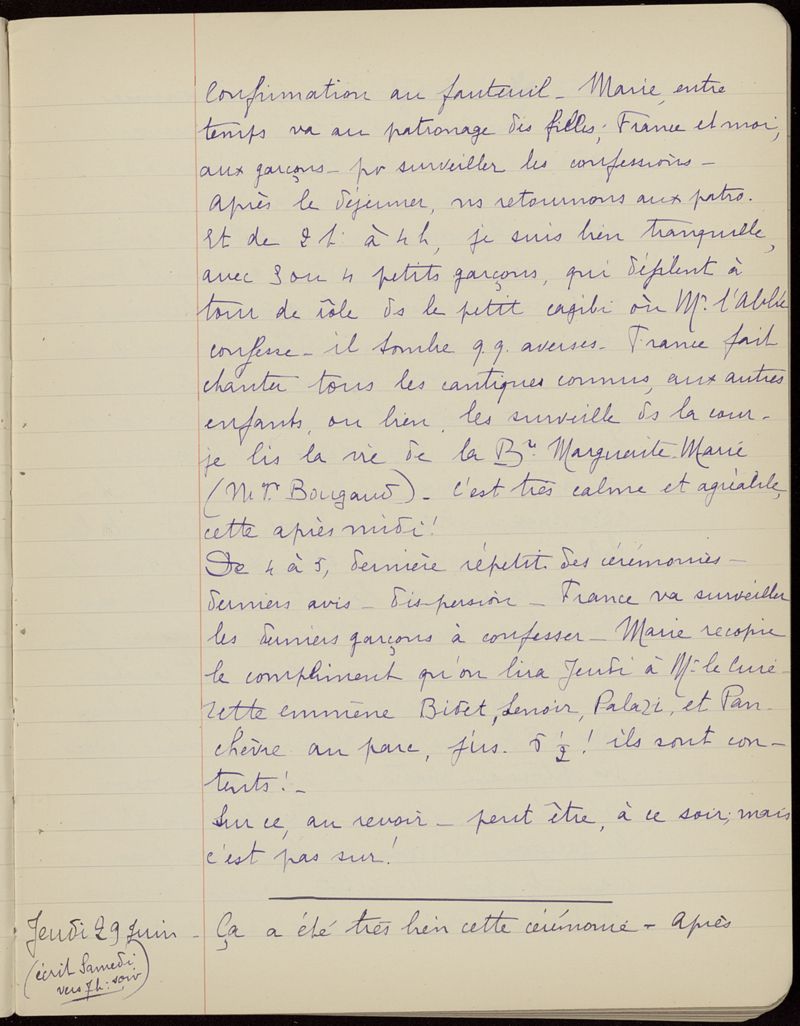 Confirmation au fauteuil - Marie, entre
temps va au patronage des filles; France et moi,
aux garçons - pr surveiller les confessions -
Après le déjeuner, ns retournons aux patro.
Et de 2 h à 4 h, je suis bien tranquille,
avec 3 ou 4 petits garçons, qui défilent à
tour de rôle ds le petit cagibi où Mr. l'Abbé
confesse - il tombe q.q. averses - France fait
chanter tous les cantiques connus, aux autres
enfants, ou bien, les surveille ds la cour -
je lis la vie de la Bse. Marguerite-Marie
(Mgr Bougaud) - C'est très calme et agréable,
cette après midi!
De 4 à 5, dernière répétit. des cérémonies -
derniers avis - dispersion - France va surveiller
les derniers garçons à confesser - Marie recopie
le compliment qu'on lira Jeudi à Mr. le Curé -
Zette emmène Bidet, Lenoir, Palazi, et Pan-
chèvre au parc, j'us. 5 1/2! ils sont con-
tents! -
Sur ce, au revoir - peut être, à ce soir; mais
c'est pas sur!
Jeudi 29 Juin - Ça a été très bien cette cérémonie - Après
(écrit Samedi
vers 7 h: soir)